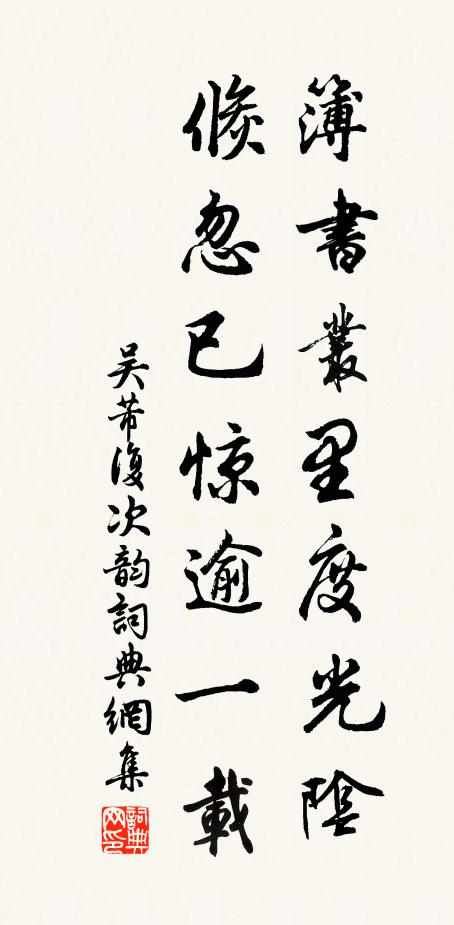 簿書叢里度光陰
倐忽已惊逾一載
吴芾復次韵詞典網集
詞典网印